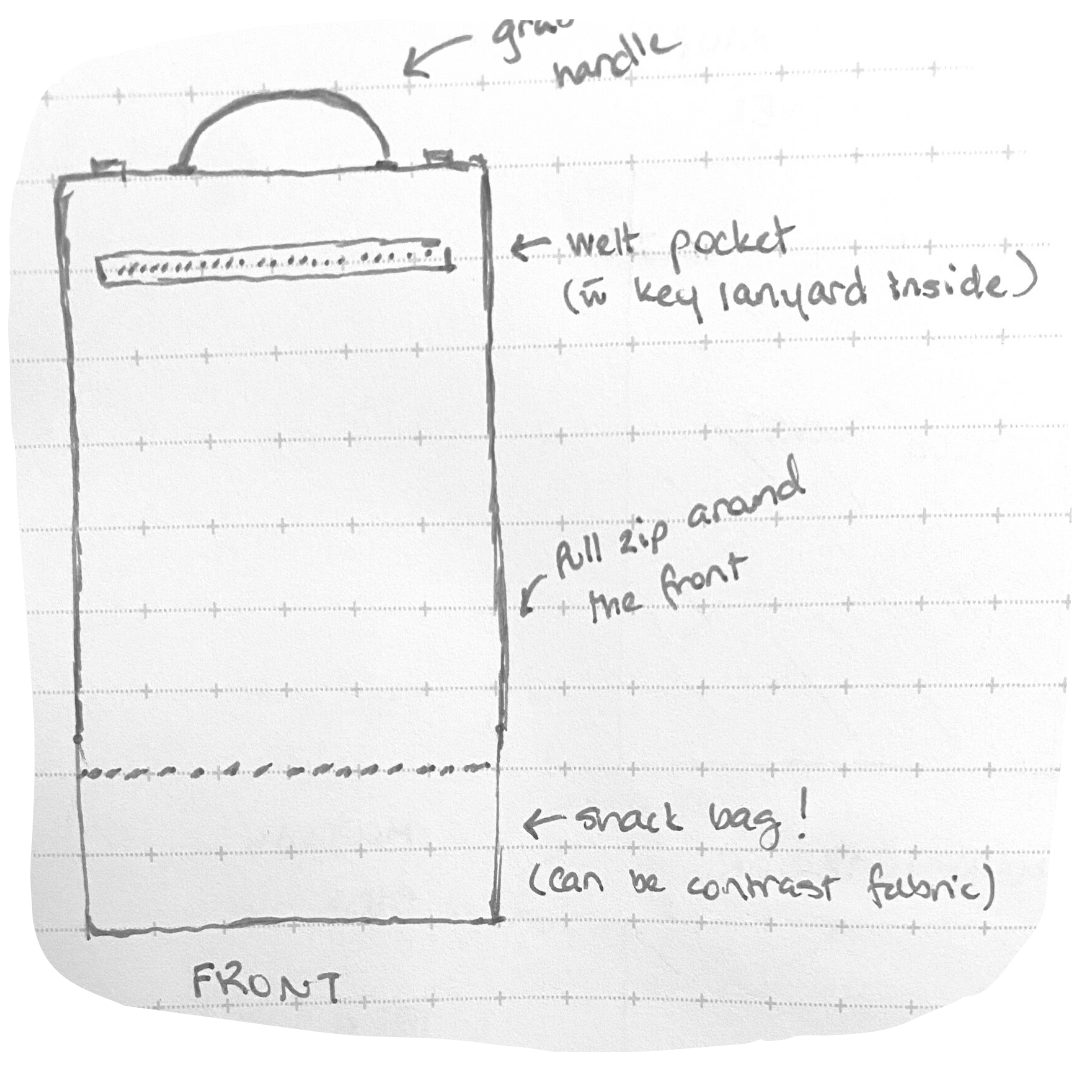 grab
handle
← welt pocket
(w̄ key lanyard inside)
full zip around
the front
← snack bag!
(can be contrast fabric)
FRONT